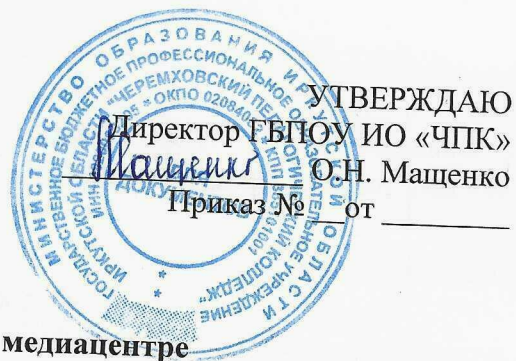 УТВЕРЖДАЮ
Директор ГБПОУ ИО «ЧПК»
О.Н. Мащенко
Приказ № __ от ________
МИНИСТЕРСТВО ОБРАЗОВАНИЯ ИРКУТСКОЙ ОБЛАСТИ
ГОСУДАРСТВЕННОЕ БЮДЖЕТНОЕ ПРОФЕССИОНАЛЬНОЕ ОБРАЗОВАТЕЛЬНОЕ УЧРЕЖДЕНИЕ
ИРКУТСКОЙ ОБЛАСТИ "ЧЕРЕМХОВСКИЙ ПЕДАГОГИЧЕСКИЙ КОЛЛЕДЖ"
медиацентре